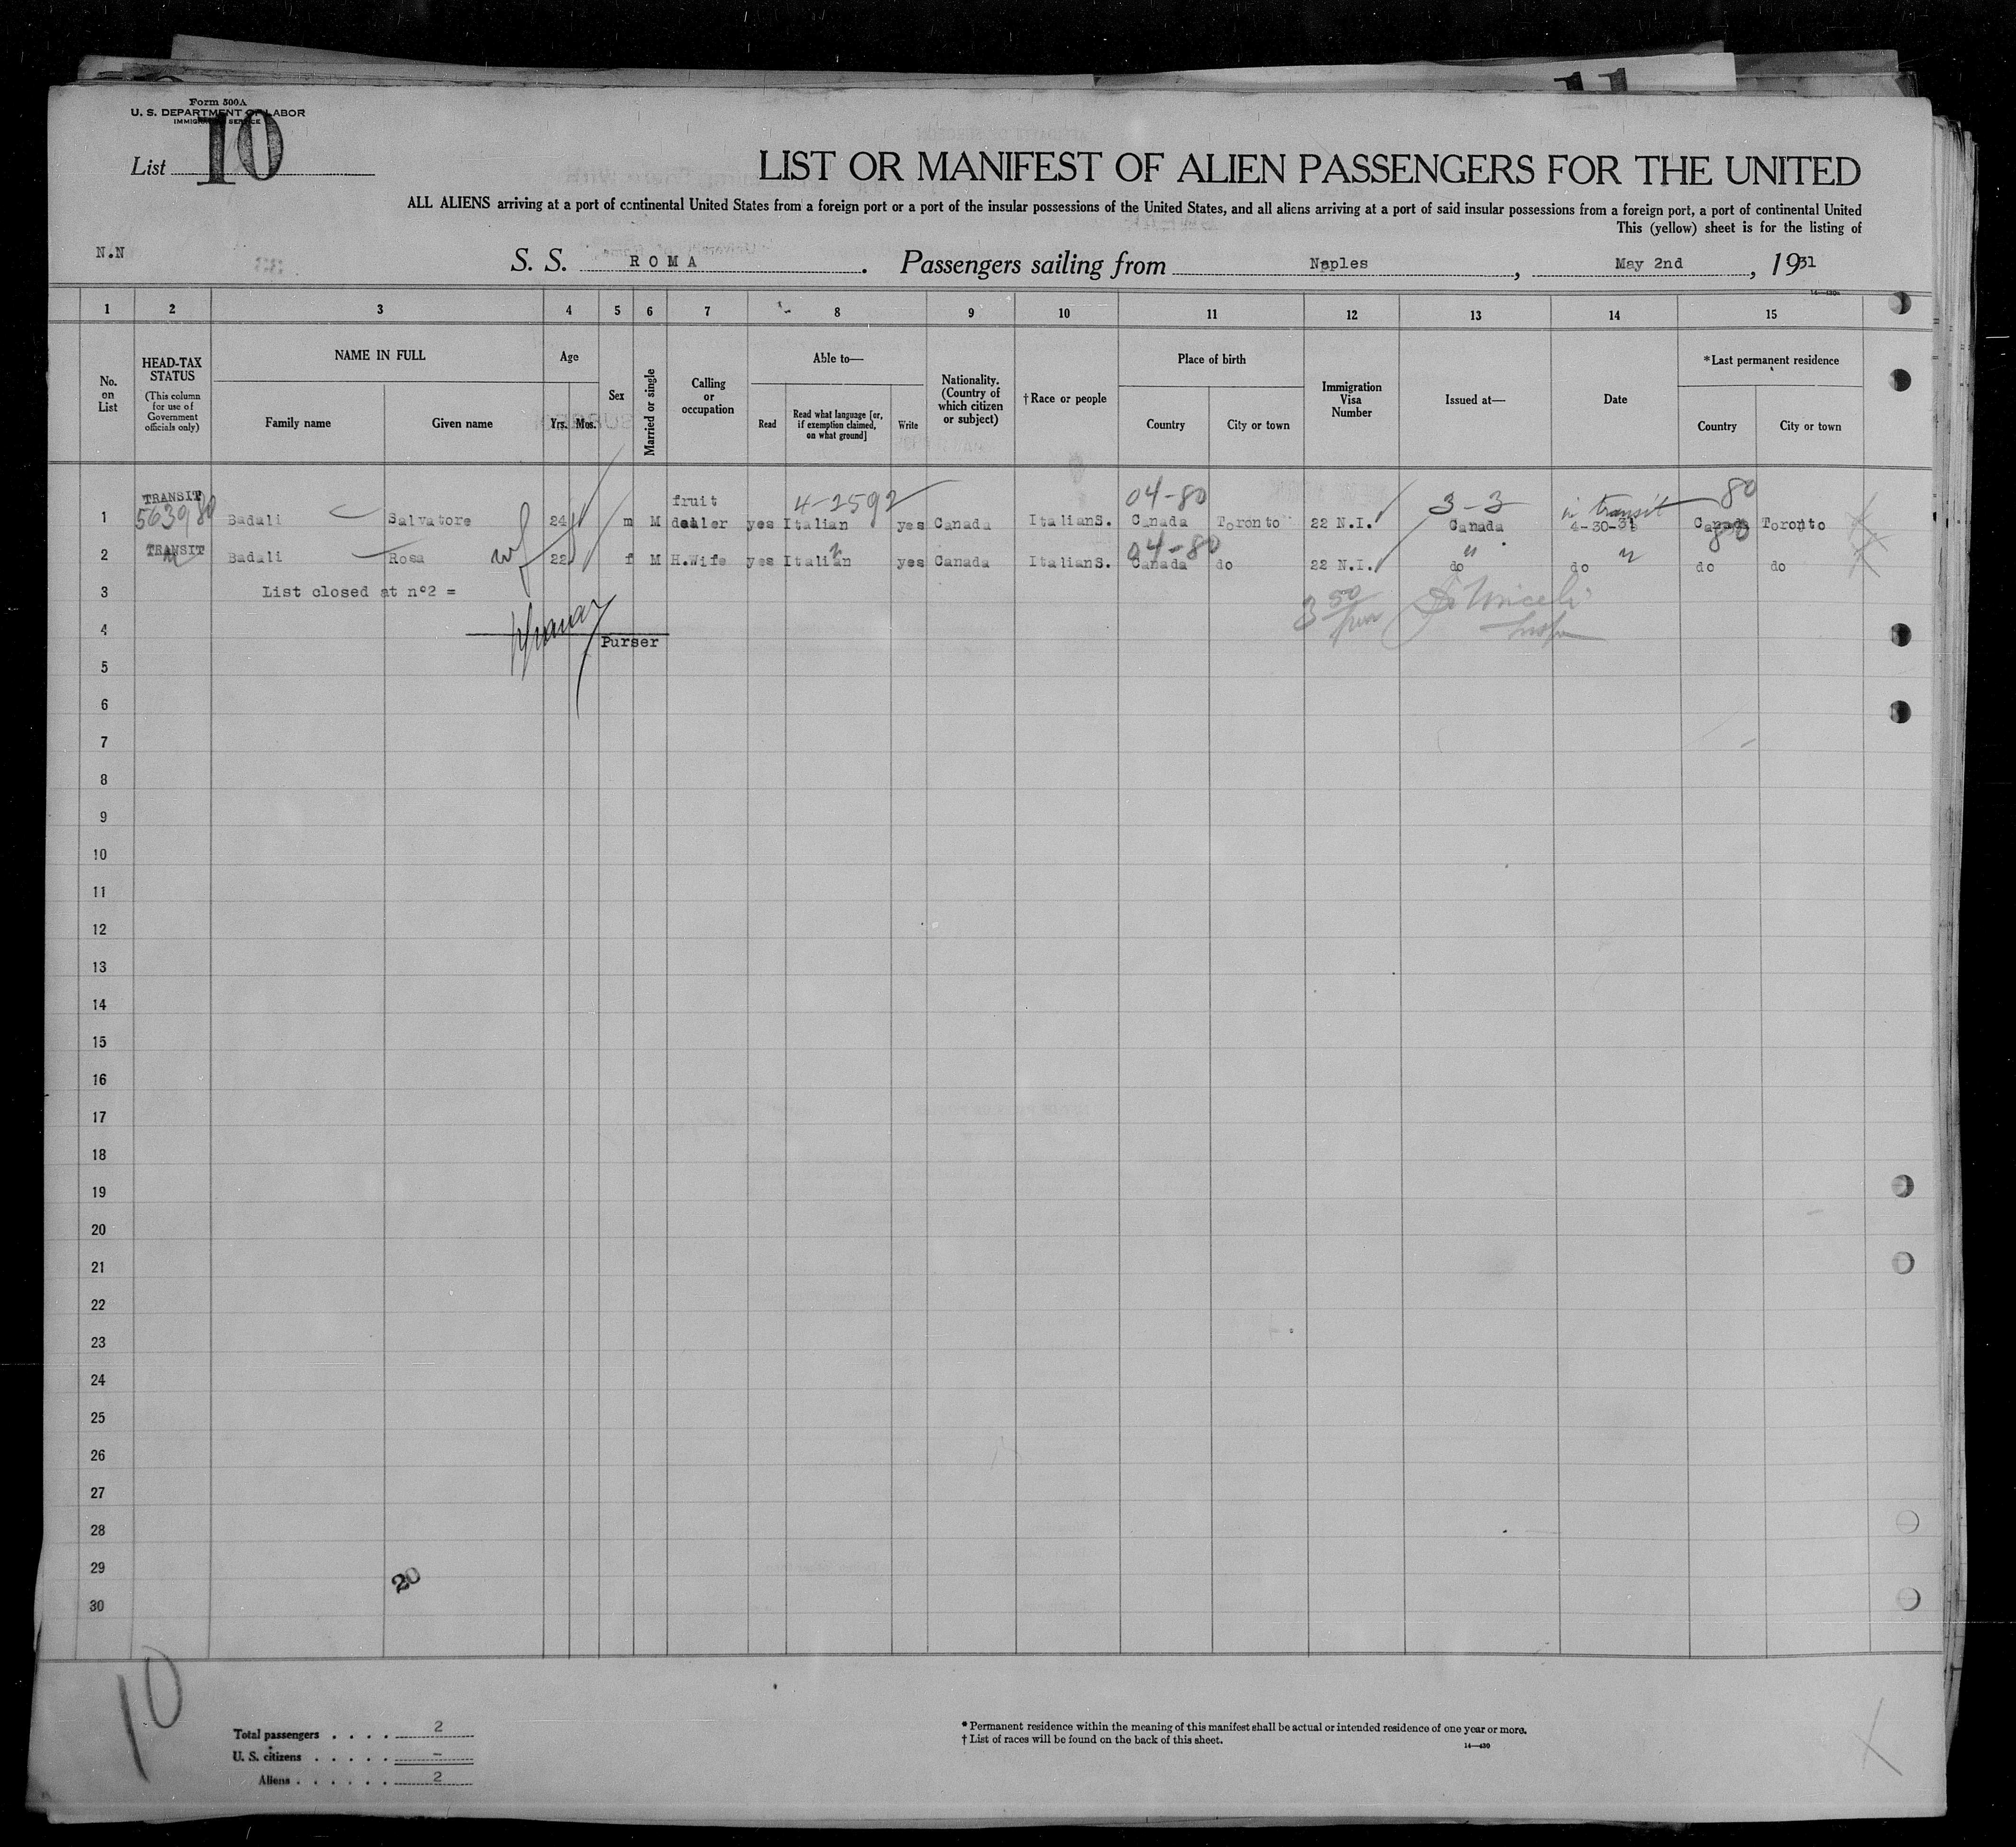 Form 500A
U. S. DEPARTMENT OF LABOR
IMMIGRATION SERVICE
List 10
LIST OR MANIFEST OF ALIEN PASSENGERS FOR THE UNITED
ALL ALIENS arriving at a port of continental United States from a foreign port or a port of the insular possessions of the United States, and all aliens arriving at a port of said insular possessions from a foreign port, a port of continental United
This (yellow) sheet is for the listing of
N.N
S. S. ROMA. Passengers sailing from Naples, May 2nd, 1931
1 2 3 4 5 6 7 8 9 10 11 12 13 14 15
No. on List
HEAD-TAX STATUS
(This column for use of Government officials only)
NAME IN FULL
Family name Given name
Age
Yrs. Mos.
Sex
Married or single
Calling or occupation
Able to—
Read
Read what language [or, if exemption claimed, on what ground]
Write
Nationality. (Country of which citizen or subject)
†Race or people
Place of birth
Country City or town
Immigration Visa Number
Issued at—
Date
*Last permanent residence
Country City or town
TRANSIT fruit 4-2592 04-80 3-3 in transit 80
1 5639/80 Badali Salvatore 24 m M dealer yes Italian yes Canada Italian S. Canada Toronto 22 N.I. Canada 4-30-31 Canada Toronto
TRANSIT 04-80 " 80
2 Badali Rosa wf 22 f M H.Wife yes Italian yes Canada Italian S. Canada do 22 N.I. do do do do
3 List closed at n°2 =
3 50
4
Purser
5
6
7
8
9
10
11
12
13
14
15
16
17
18
19
20
21
22
23
24
25
26
27
28
29
20
30
10
Total passengers . . . . 2
U. S. citizens . . . . . –
Aliens . . . . . . 2
* Permanent residence within the meaning of this manifest shall be actual or intended residence of one year or more.
† List of races will be found on the back of this sheet.
14—430